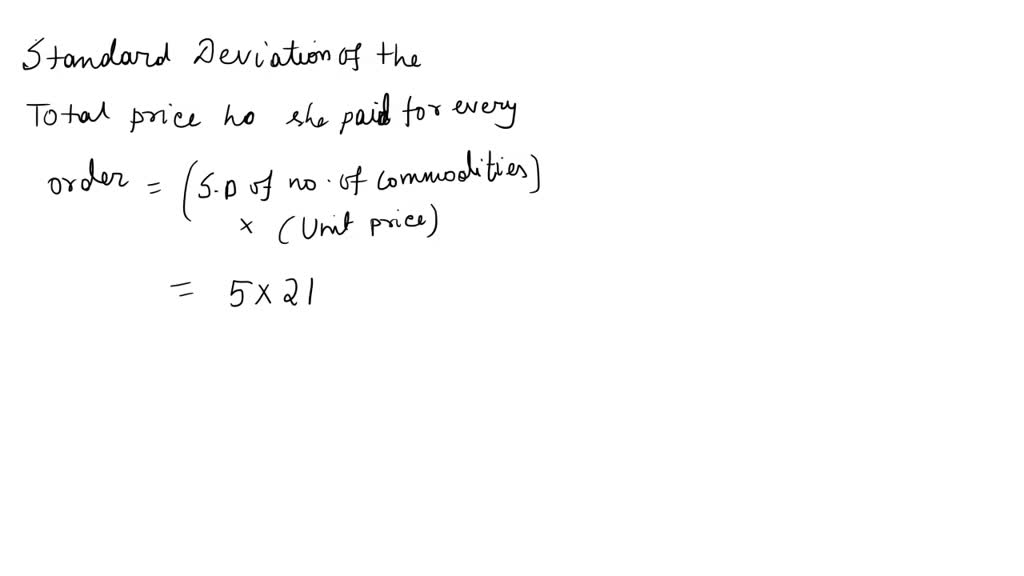 Standard Deviation of the
Total price ho she paid for every
order = (S.D of no. of commodities)
× (Unit price)
= 5 × 21